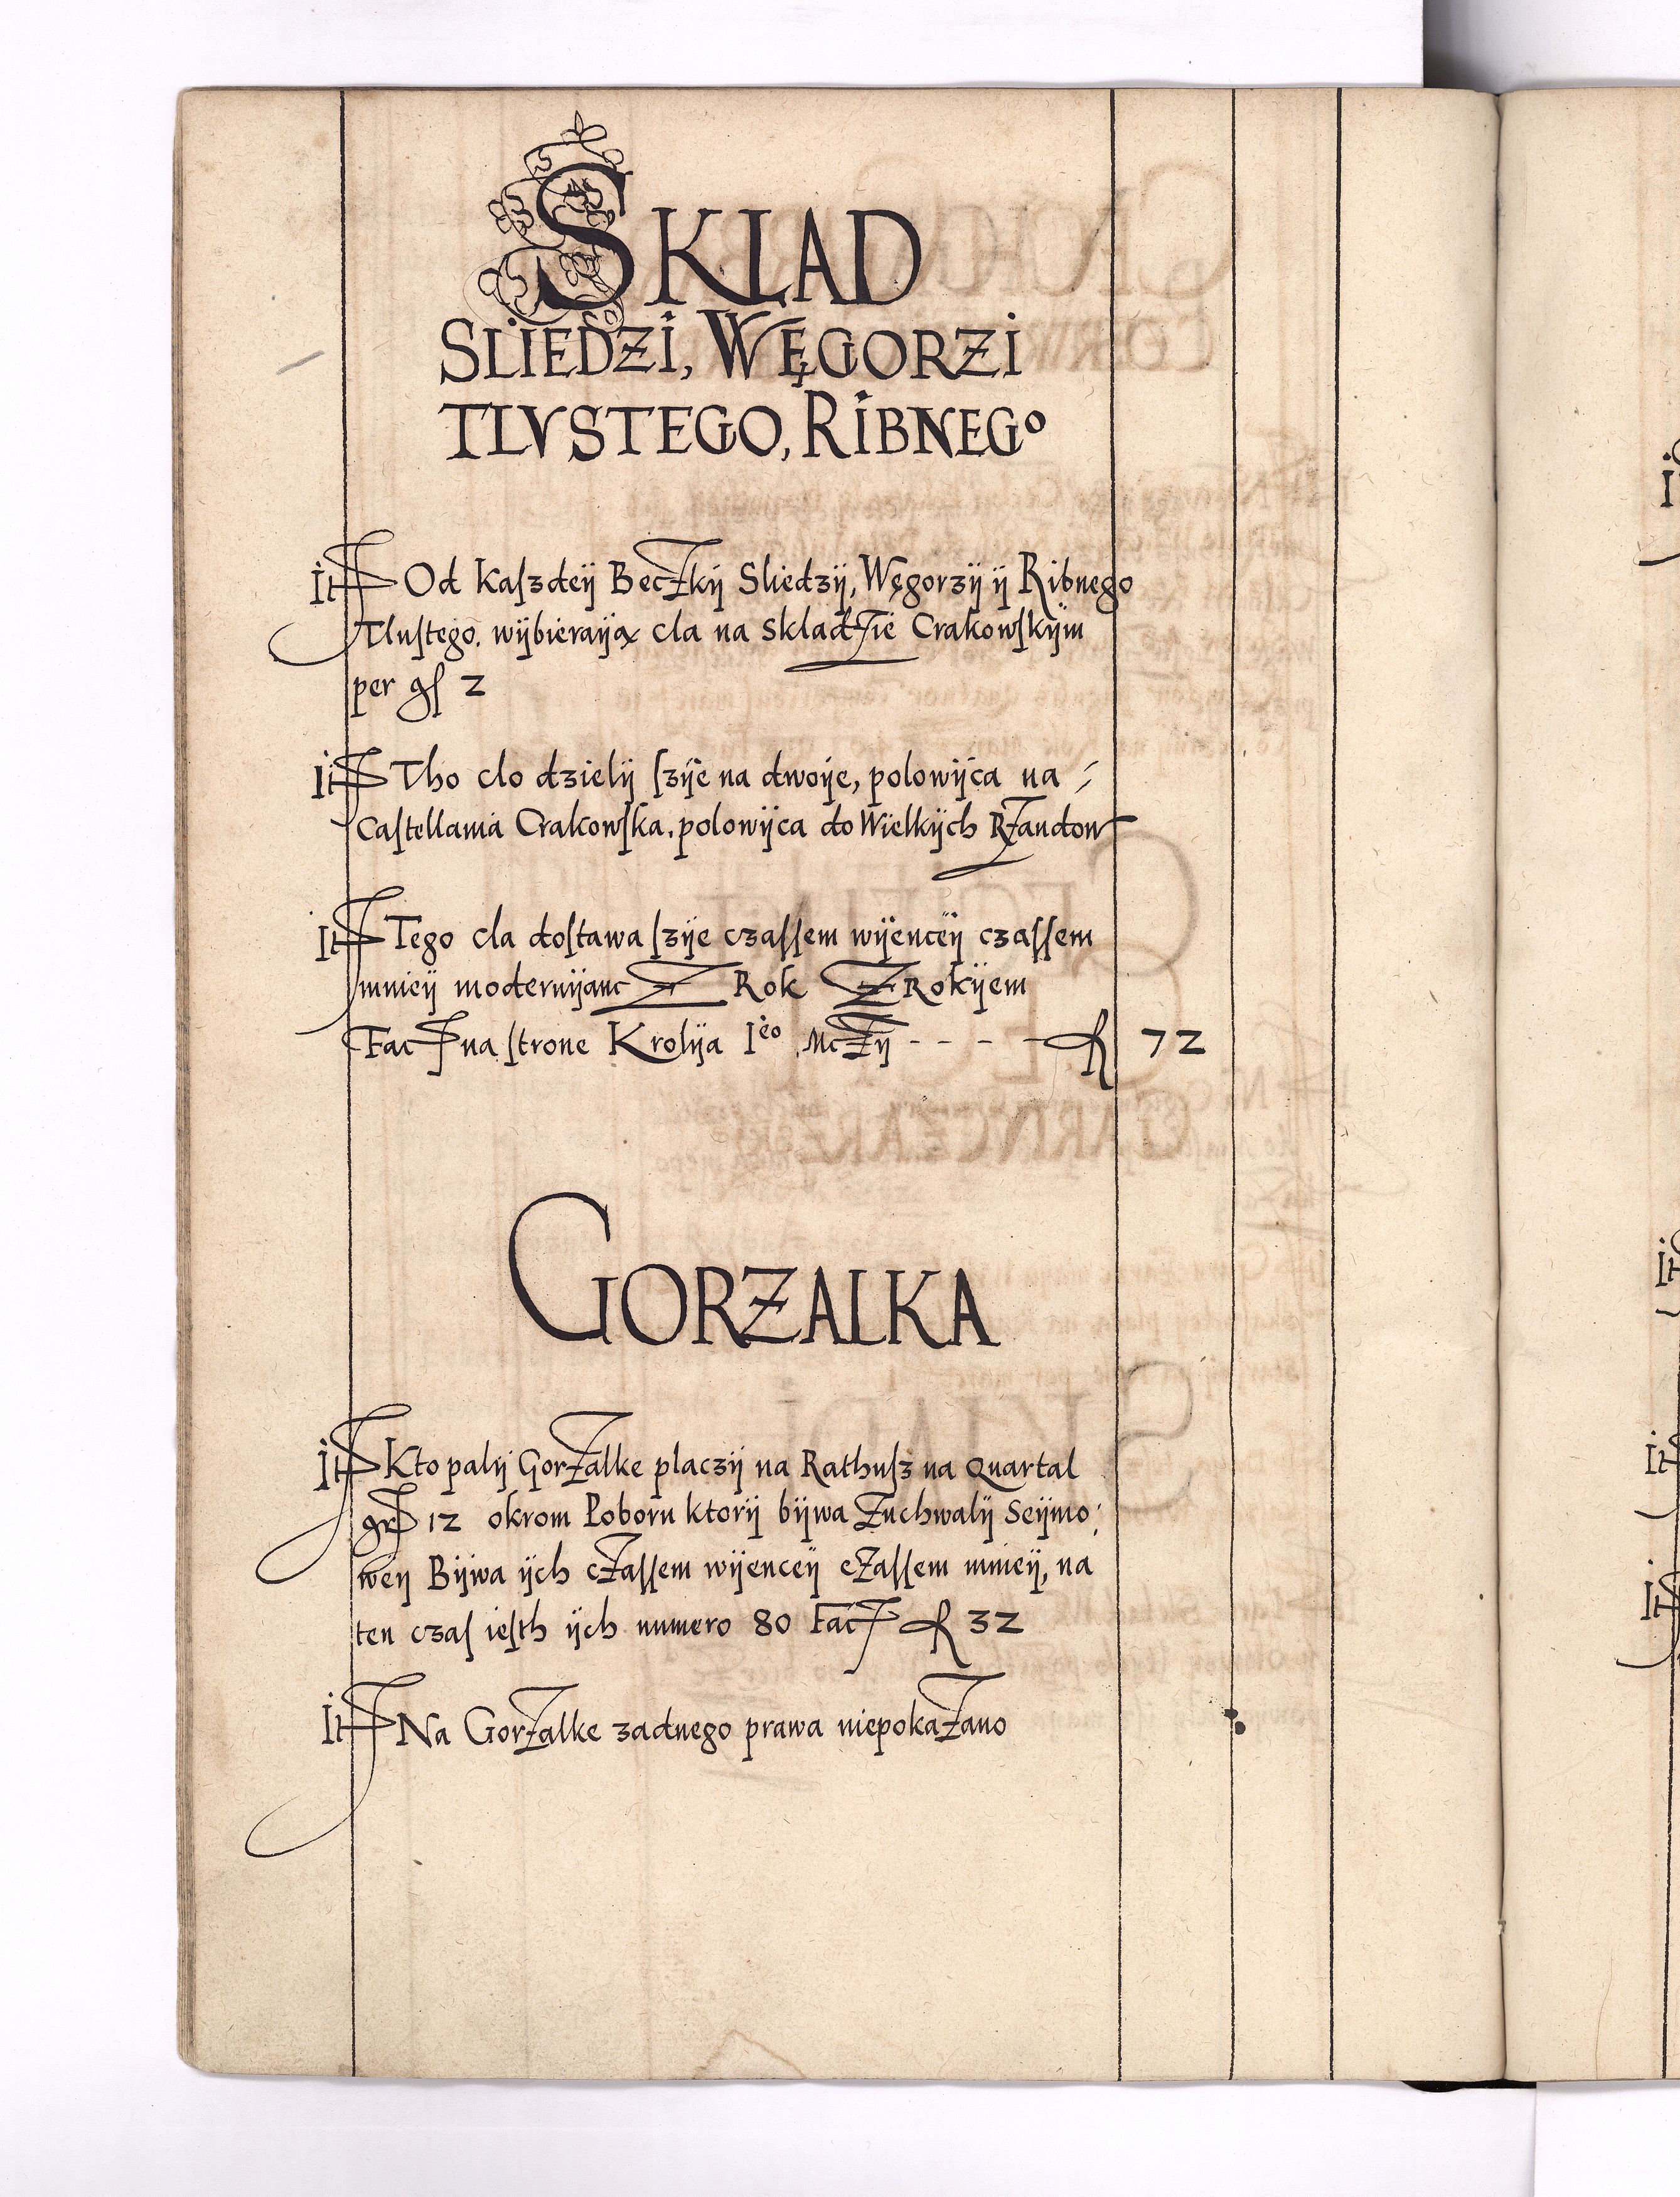 SKLAD
SLIEDZI, WĘGORZI
TLVSTEGO, RIBNEGO
It Od Kaſzdeÿ Beczkÿ Sliedzÿ, Węgorzÿ ÿ Ribnego
Tluſtego. wÿbieraÿą cla na skladzie Crakowſkÿm
per gſ 2
It Tho clo dzielÿ ſzÿe na dwoÿe, polowÿca na
Caſtellania Crakowſka. polowÿca do Wielkÿch Rzandow
It Tego cla doſtawa ſzÿe czaſſem wÿenceÿ czaſſem
mnieÿ modernÿanc Z Rok Z Rokÿem
Fac na ſtrone Krolÿa Ieo Mczÿ - - - - 72
GORZALKA
It Kto palÿ Gorzalke placzÿ na Rathuſz na Quartal
gr 12 okrom Poboru ktorÿ bÿwa Zuchwalÿ Seÿmo
weÿ Bÿwa ÿch czaſſem wÿenceÿ czaſſem mnieÿ, na
ten czaſ ieſth ÿch numero 80 Fac 32
It Na Gorzalke zadnego prawa niepokazano